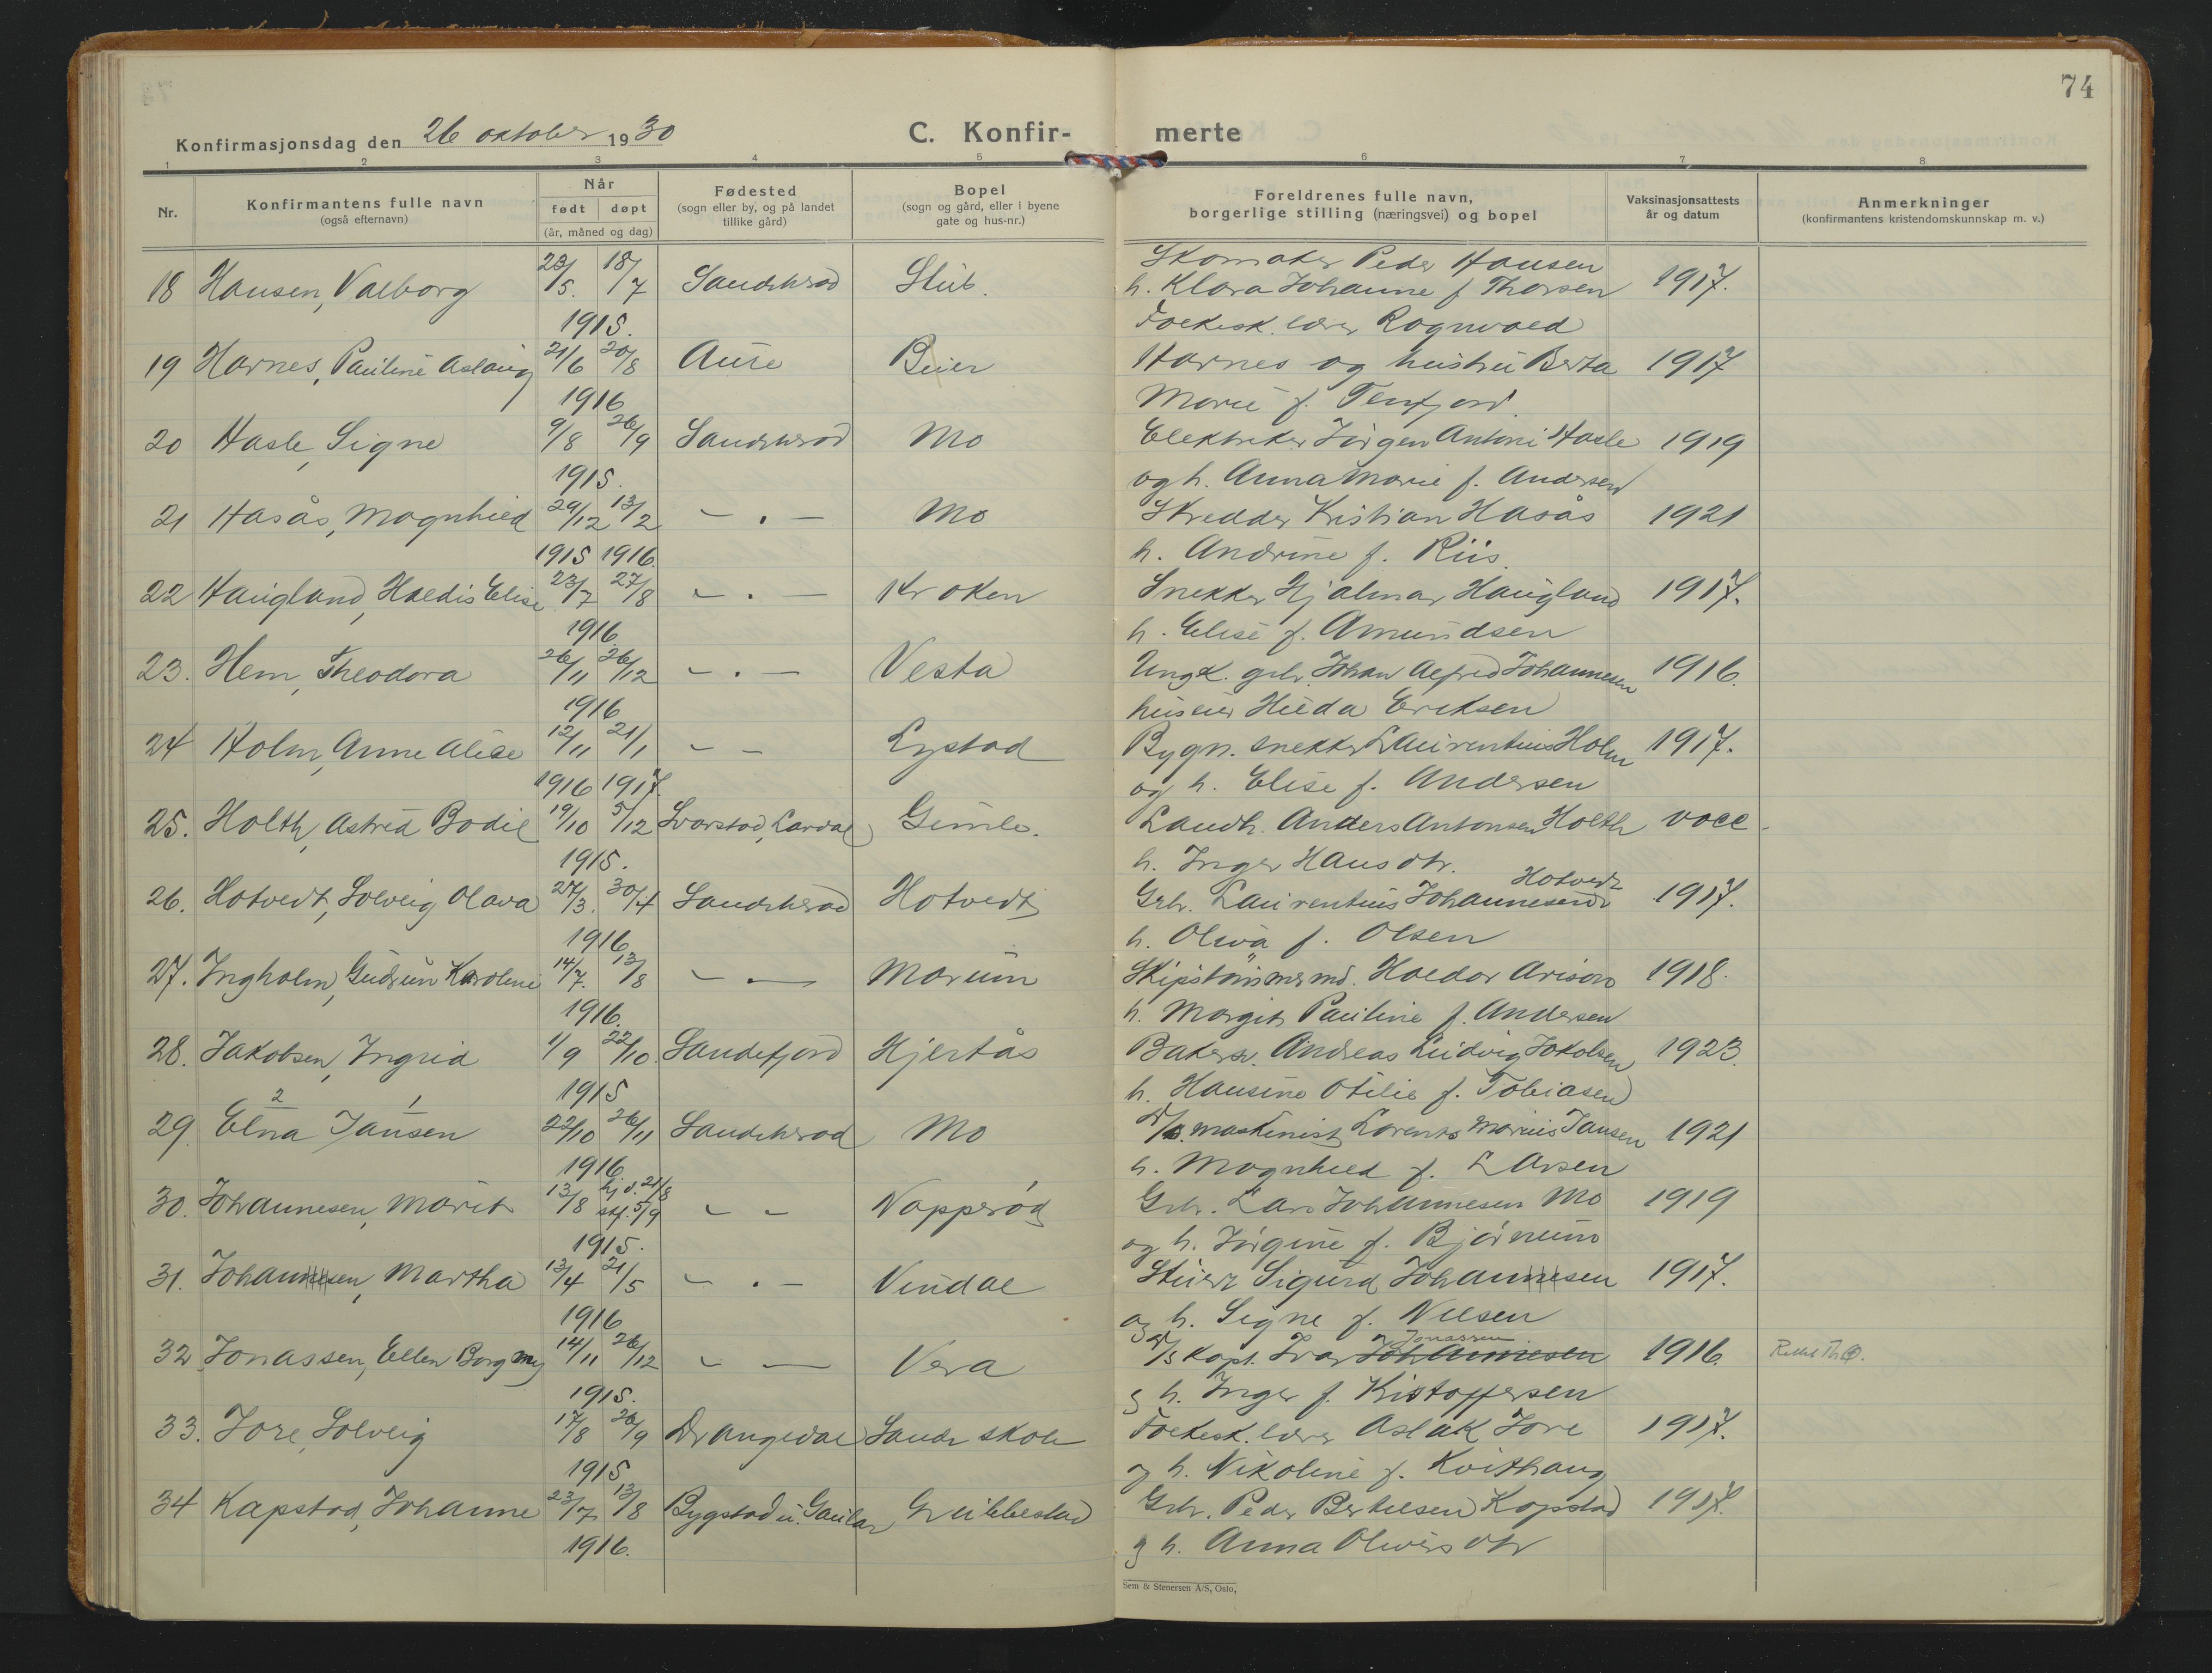 74
Konfirmasjonsdag den 26 oktober 1930
C. Konfir- merte
1 2 3 4 5 6 7 8
Nr.
Konfirmantens fulle navn
(også efternavn)
Når
født døpt
(år, måned og dag)
Fødested
(sogn eller by, og på landet
tillike gård)
Bopel
(sogn og gård, eller i byene
gate og hus-nr.)
Foreldrenes fulle navn,
borgerlige stilling (næringsvei) og bopel
Vaksinasjonsattests
år og datum
Anmerkninger
(konfirmantens kristendomskunnskap m. v.)
18 Hansen, Valborg 23/5. 18/7 Sandeherad Stub. Skomaker Peder Hansen 1917.
1915. h. Klara Johanne f Thorsen
19 Harnes, Pauline Aslaug 21/6 20/8 Aure Beier Folkesk. lærer Ragnvald 1917
1916 Harnes og hustru Berta
Marie f. Tenfjord.
20 Hasle, Signe 9/8 26/9 Sandeherad Mo Elektriker Jørgen Antoni Hasle 1919
1915. og h. Anna Marie f. Andersen
21 Hasås, Magnhild 29/12 13/2 - . - Mo Skredder Kristian Hasås 1921
1915 1916. h. Andrine f. Riis.
22 Haugland, Haldis Elise 23/7 27/8 - . - Kroken Snekker Hjalmar Haugland 1917.
1916. h. Elise f. Amundsen
23. Hem, Theodora 26/11 26/12 - . - Vesta Ungk. grb. Johan Alfred Johannesen 1916.
1916 huseier Hilda Eriksen
24 Holm, Anne Alise 12/11 21/1 - - Lystad Bygn. snekker Laurentius Holm 1917.
1916 1917. og h. Elise f. Andersen
25. Holth, Astrid Bodil 19/10 5/12 Svarstad, Lardal Gimle. Landh. Anders Antonsen Holth vacc.
1915. h. Inger Hansdtr.
26. Hotvedt, Solveig Olava 27/3. 30/4 Sandeherad Hotvedt Grb. Laurentius Johannesen Hotvedt 1917.
1916 h. Oliva f. Olsen
27. Ingholm, Gudrun Karoline 14/7. 13/8 - . - Marum Skipstømmermd. Haldor 1918.
1916. h. Margit Pauline f. Andersen
28. Jakobsen, Ingrid 1/9 22/10. Sandefjord Hjertås Bakersv. Andreas Ludvig Jakobsen 1923.
1915 h. Hansine Otilie f. Tobiasen
29. 2 Elna 1 Jansen 22/10 26/11 Sandeherad Mo maskinist Lorents Marius Jansen 1921
1916 h. Magnhild f. Larsen
30. Johannesen, Marit 13/8 hj.d. 21/8 stf. 5/9 - - Napperød Grb. Lars Johannesen Mo 1919
1915. og h. Jørgine f. Bjørnum
31. Johannesen, Martha 13/4 21/5 - . - Vindal Stuert Sigurd Johannesen 1917.
1916 og h. Signe f. Nilsen
32 Jonassen, Ellen Borgny 14/11 26/12 - - Vera Kapt. Ivar Johannesen Jonassen 1916.
1915. g h. Inger f. Kristoffersen
33. Jore, Solveig 17/8 26/9 Drangedal Sande skole Folkesk. lærer Aslak Jore 1917.
1915 g h. Nikoline f. Kvithaug
34 Kapstad, Johanne 23/7 13/8 Bygstad i. Gaular Gubbestad Grb. Peder Bertilsen Kapstad 1917.
1916. g h. Anna Oliversdtr
Sem & Stenersen A/S, Oslo,